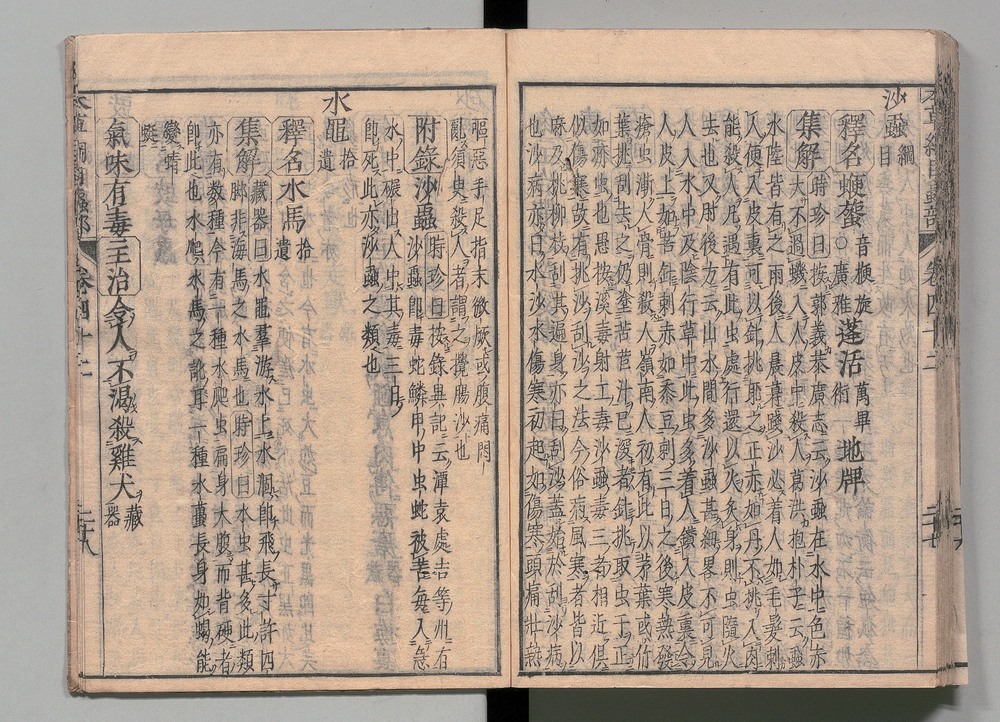 沙蝨綱目
釋名 蝍蔢 音楩旋○廣雅 蓬活 萬畢術 地牌
集解 時珍曰按郭義恭廣志云沙蝨在水中色赤
大不過蟣入人皮中殺人葛洪抱朴子云蝨
水陸皆有之雨後人晨暮踐沙必着人如毛髮刺
人便入皮裏可以針挑取之正赤如丹不挑入肉
能殺人凡遇有此虫處行還以火炙身則虫隨火
去也又肘後方云山水間多沙蝨甚細畧不可見
人入水中及陰行草中此虫多着人鑽入皮裏令
人皮上如芒針刺赤如黍豆刺三日之後寒熱發
瘡虫漸入骨則殺人嶺南人初有此以茅葉或竹
葉挑刮去之仍塗苦苣汁已深者針挑取虫子正
如疥虫也愚按溪毒射工毒沙蝨毒三者相近俱
似傷寒故有挑沙刮沙之法今俗病風寒者皆以
麻及桃柳枝刮其遍身亦曰刮沙蓋始於刮沙病
也沙病亦曰水沙水傷寒初起如傷寒頭痛壯熱
嘔惡手足指末微厥或腹痛悶
亂須臾殺人者謂之攪腸沙也
附錄 沙蟲 時珍曰按錄異記云潭袁處吉等州有
沙蟲即毒蛇鱗甲中虫蛇被苦每入急
水中碾出人中其毒三日
即死此亦沙蝨之類也
水黽 拾遺
釋名 水馬 拾遺
集解 藏器曰水黽羣游水上水涸即飛長寸許四
脚非海馬之水馬也時珍曰水虫甚多此類
亦有數種今有一種水爬虫扁身大腹而背硬者
即此也水爬水馬之訛耳一種水蠆長身如蝎能
變蜻
蜓
氣味 有毒 主治 令人不渴殺雞犬 藏器